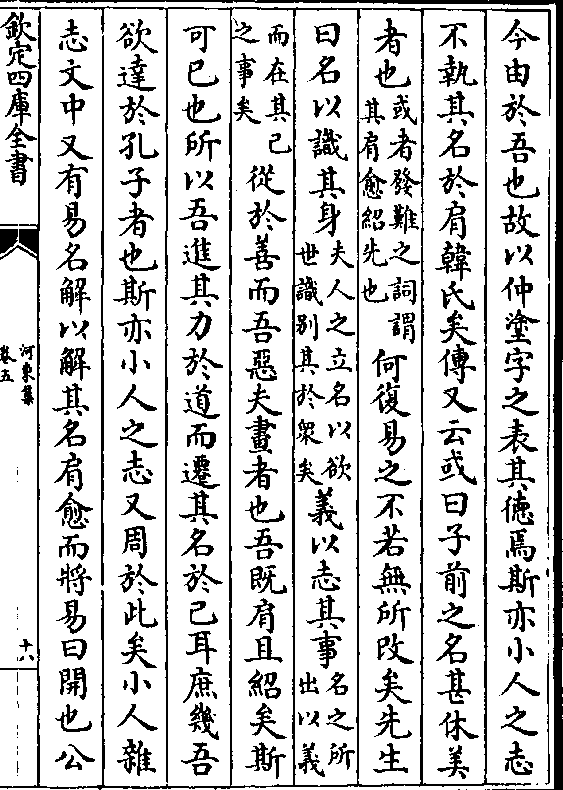 今由於吾也故以仲塗字之表其德焉斯亦小人之志
不執其名於肩韓氏矣傳又云或曰子前之名甚休美
者也或者發難之詞謂其肩愈紹先也何復易之不若無所改矣先生
曰名以識其身夫人之立名以欲世識别其於衆矣義以志其事名之所出以義
而在其己之事矣從於善而吾惡夫畫者也吾既肩且紹矣斯
可已也所以吾進其力於道而遷其名於己耳庶幾吾
欲達於孔子者也斯亦小人之志又周於此矣小人雜
志文中又有易名解以解其名肩愈而將易曰開也公
欽定四庫全書
河東集
卷五
十六